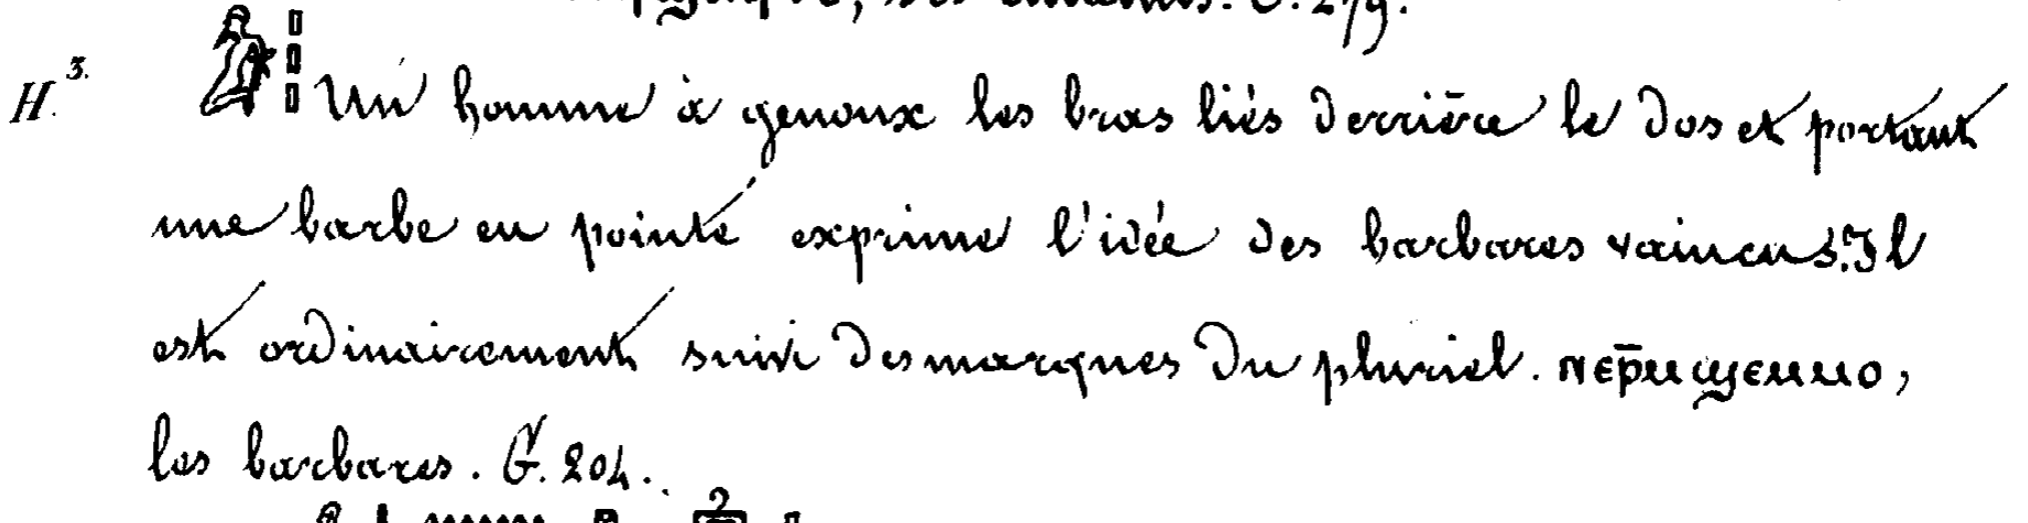 H.³ Un homme à genoux les bras liés derrière le dos et portant
une barbe en pointe exprime l'idée des barbares vaincus. Il
est ordinairement suivi des marques du pluriel.
les barbares. G. 204.